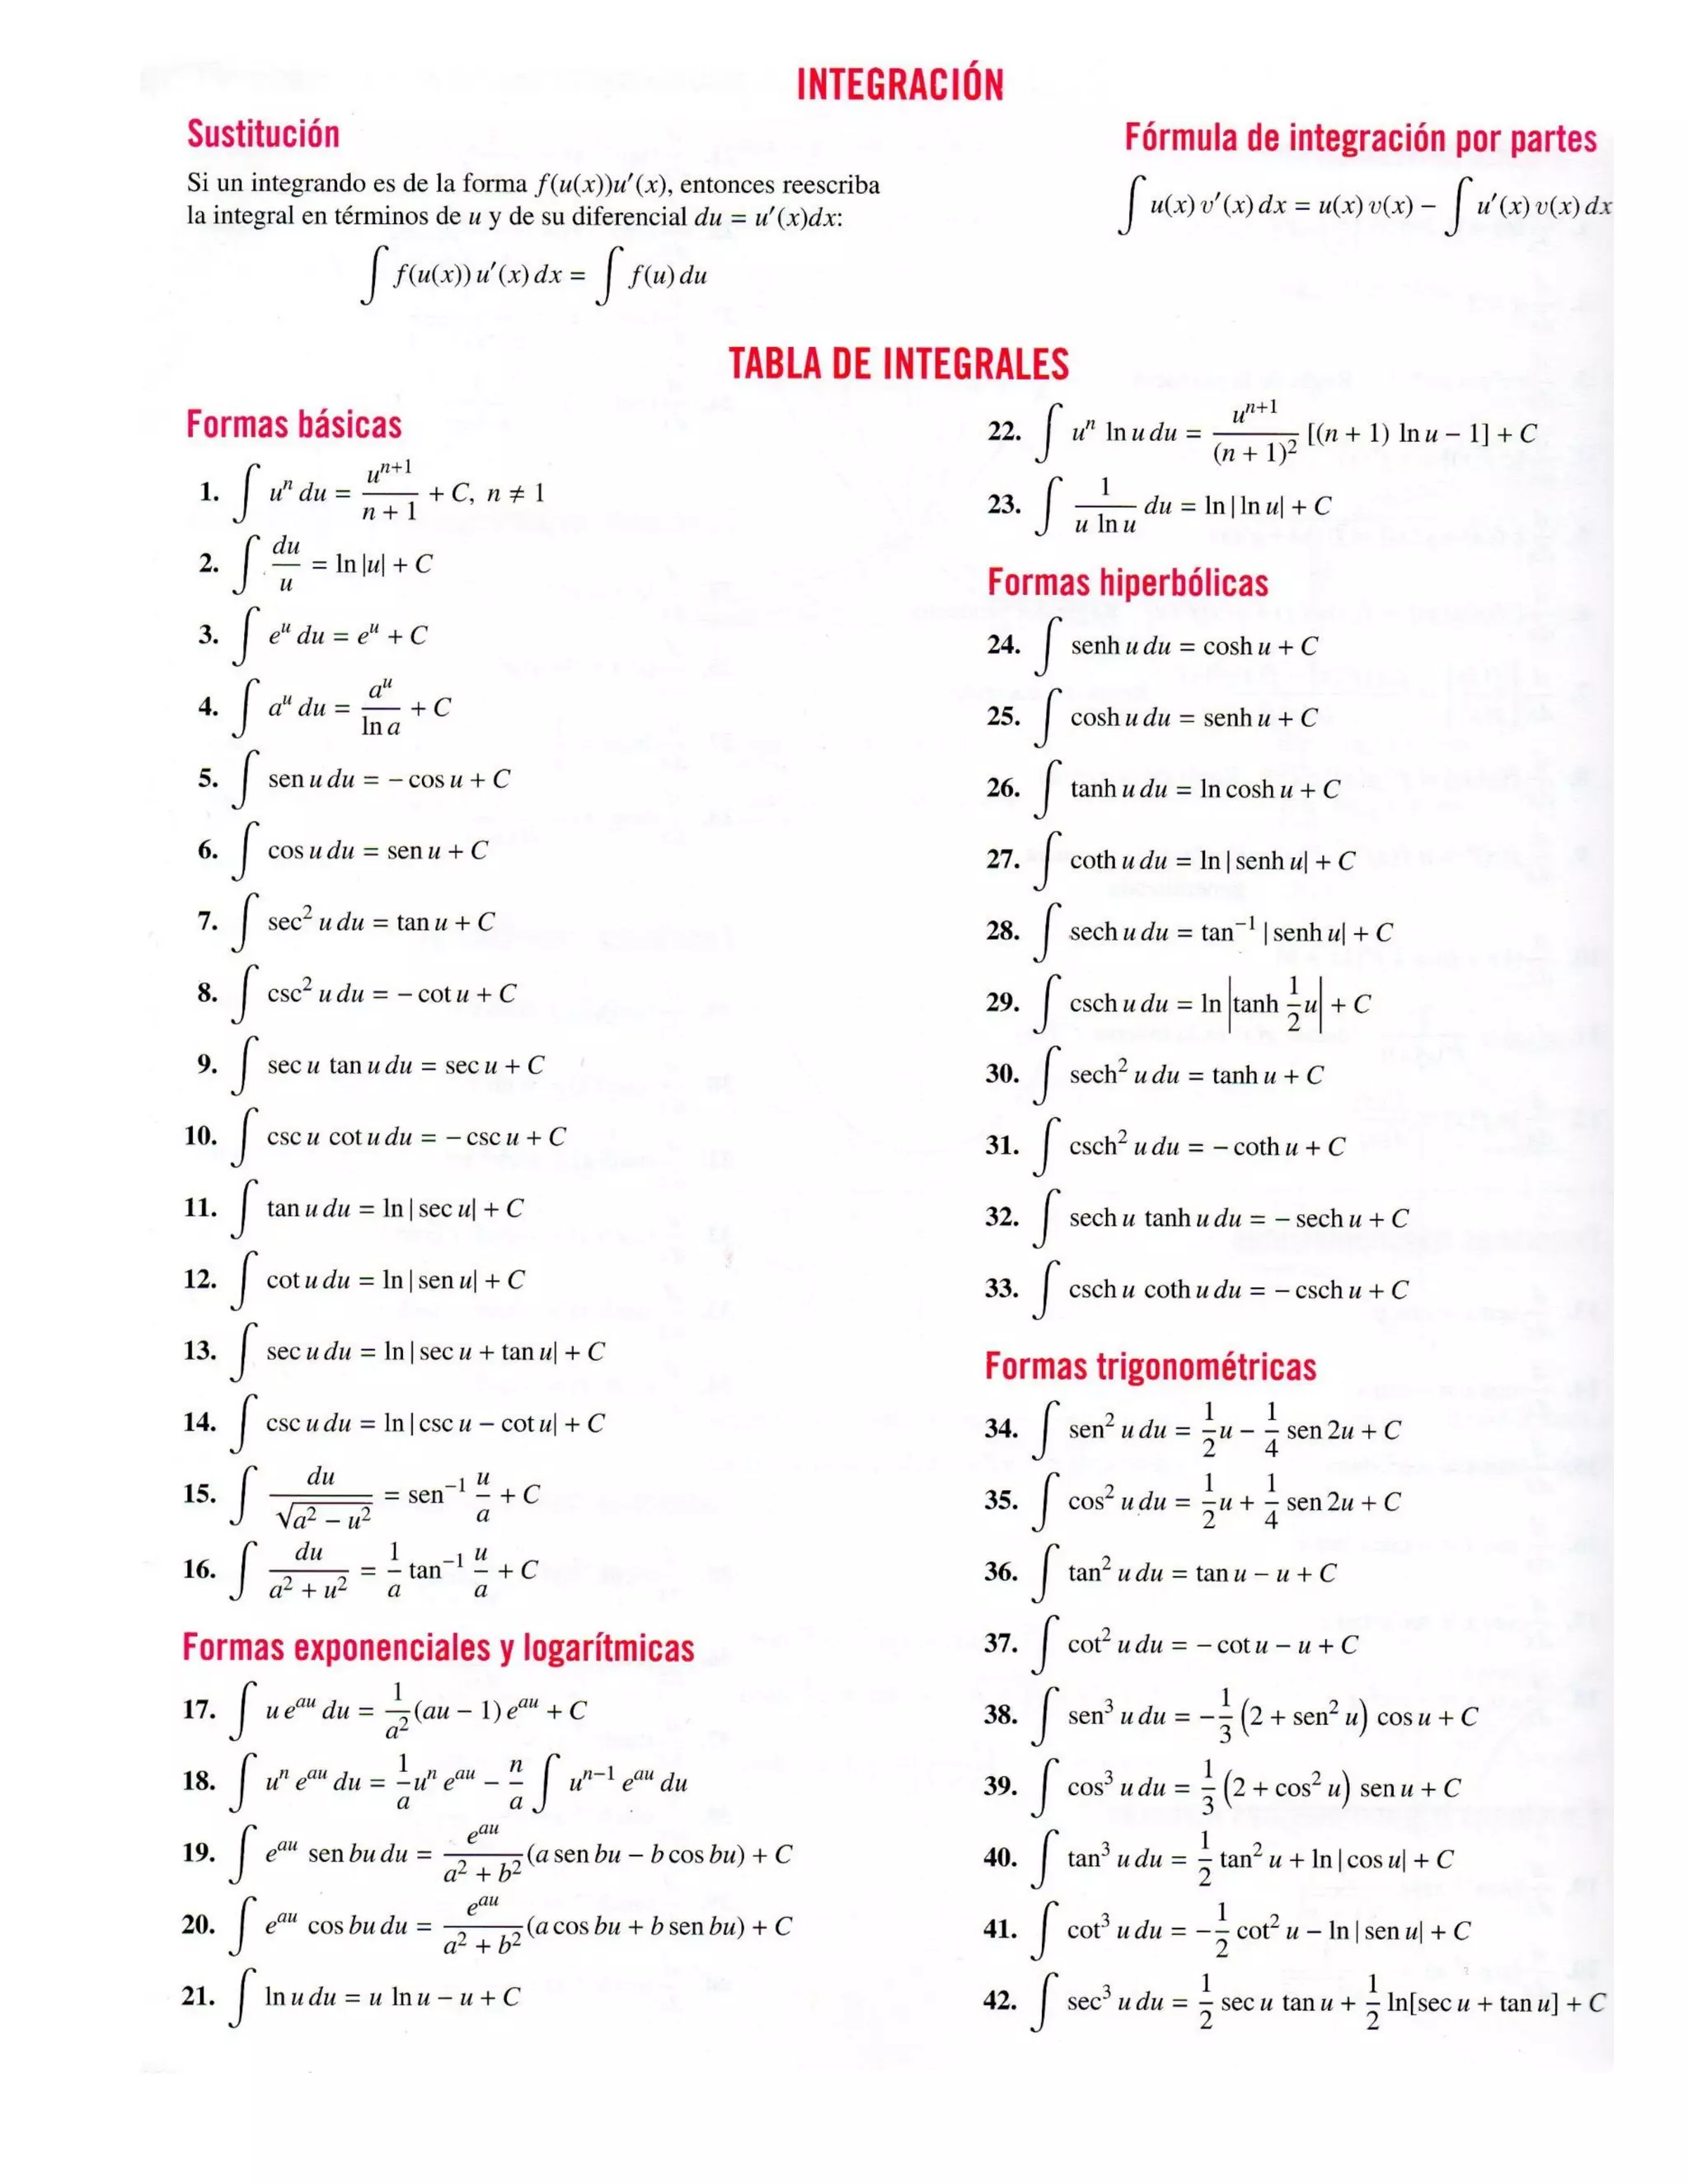 INTEGRACIÓN
Sustitución
Si un integrando es de la forma f(u(x))u′(x), entonces reescriba
la integral en términos de u y de su diferencial du = u′(x)dx:
∫ f(u(x)) u′(x) dx = ∫ f(u) du
Fórmula de integración por partes
∫ u(x) v′(x) dx = u(x) v(x) − ∫ u′(x) v(x) dx
TABLA DE INTEGRALES
Formas básicas
1. ∫ uⁿ du = uⁿ⁺¹/(n + 1) + C, n ≠ 1
2. ∫ du/u = ln |u| + C
3. ∫ eᵘ du = eᵘ + C
4. ∫ aᵘ du = aᵘ/ln a + C
5. ∫ sen u du = − cos u + C
6. ∫ cos u du = sen u + C
7. ∫ sec² u du = tan u + C
8. ∫ csc² u du = − cot u + C
9. ∫ sec u tan u du = sec u + C
10. ∫ csc u cot u du = − csc u + C
11. ∫ tan u du = ln | sec u| + C
12. ∫ cot u du = ln | sen u| + C
13. ∫ sec u du = ln | sec u + tan u| + C
14. ∫ csc u du = ln | csc u − cot u| + C
15. ∫ du/√(a² − u²) = sen⁻¹ u/a + C
16. ∫ du/(a² + u²) = 1/a tan⁻¹ u/a + C
Formas exponenciales y logarítmicas
17. ∫ u eᵃᵘ du = 1/a² (au − 1) eᵃᵘ + C
18. ∫ uⁿ eᵃᵘ du = 1/a uⁿ eᵃᵘ − n/a ∫ uⁿ⁻¹ eᵃᵘ du
19. ∫ eᵃᵘ sen bu du = eᵃᵘ/(a² + b²) (a sen bu − b cos bu) + C
20. ∫ eᵃᵘ cos bu du = eᵃᵘ/(a² + b²) (a cos bu + b sen bu) + C
21. ∫ ln u du = u ln u − u + C
22. ∫ uⁿ ln u du = uⁿ⁺¹/(n + 1)² [(n + 1) ln u − 1] + C
23. ∫ 1/(u ln u) du = ln | ln u| + C
Formas hiperbólicas
24. ∫ senh u du = cosh u + C
25. ∫ cosh u du = senh u + C
26. ∫ tanh u du = ln cosh u + C
27. ∫ coth u du = ln | senh u| + C
28. ∫ sech u du = tan⁻¹ | senh u| + C
29. ∫ csch u du = ln |tanh 1/2 u| + C
30. ∫ sech² u du = tanh u + C
31. ∫ csch² u du = − coth u + C
32. ∫ sech u tanh u du = − sech u + C
33. ∫ csch u coth u du = − csch u + C
Formas trigonométricas
34. ∫ sen² u du = 1/2 u − 1/4 sen 2u + C
35. ∫ cos² u du = 1/2 u + 1/4 sen 2u + C
36. ∫ tan² u du = tan u − u + C
37. ∫ cot² u du = − cot u − u + C
38. ∫ sen³ u du = −1/3 (2 + sen² u) cos u + C
39. ∫ cos³ u du = 1/3 (2 + cos² u) sen u + C
40. ∫ tan³ u du = 1/2 tan² u + ln | cos u| + C
41. ∫ cot³ u du = −1/2 cot² u − ln | sen u| + C
42. ∫ sec³ u du = 1/2 sec u tan u + 1/2 ln[sec u + tan u] + C